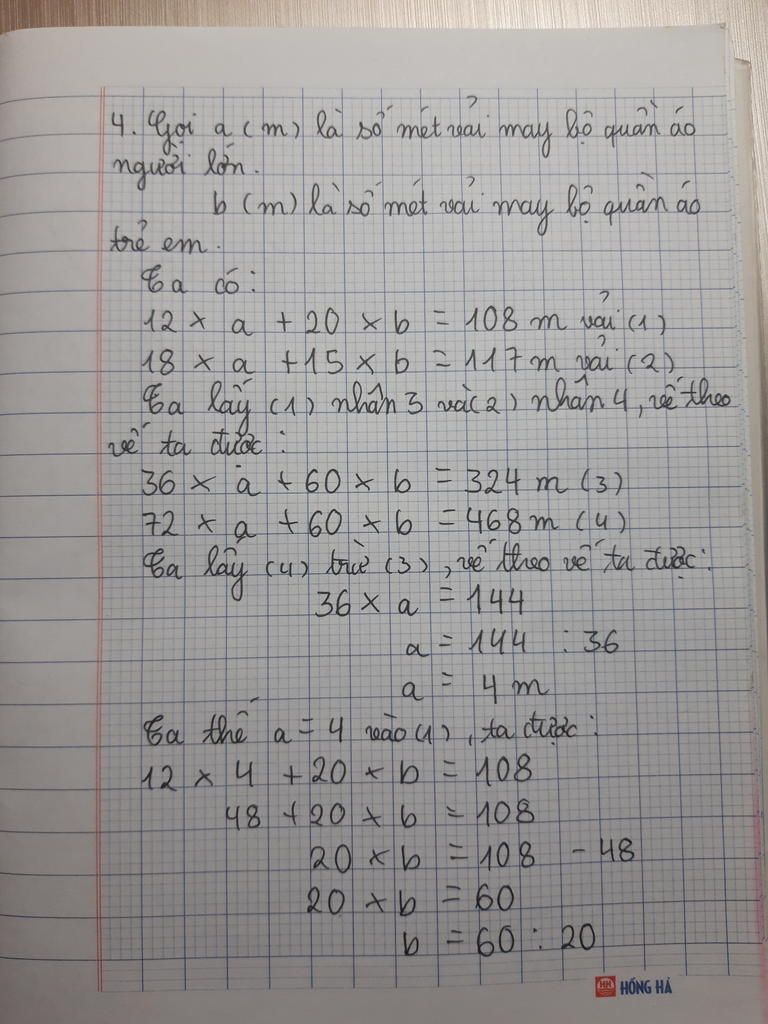 4. Gọi a (m) là số mét vải may bộ quần áo
người lớn.
b (m) là số mét vải may bộ quần áo
trẻ em.
Ta có:
12 × a + 20 × b = 108 m vải (1)
18 × a + 15 × b = 117 m vải (2)
Ta lấy (1) nhân 3 và (2) nhân 4, vế theo
vế ta được:
36 × a + 60 × b = 324 m (3)
72 × a + 60 × b = 468 m (4)
Ta lấy (4) trừ (3), vế theo vế ta được:
36 × a = 144
a = 144 : 36
a = 4 m
Ta thế a = 4 vào (1), ta được:
12 × 4 + 20 × b = 108
48 + 20 × b = 108
20 × b = 108 - 48
20 × b = 60
b = 60 : 20
HH HỒNG HÀ